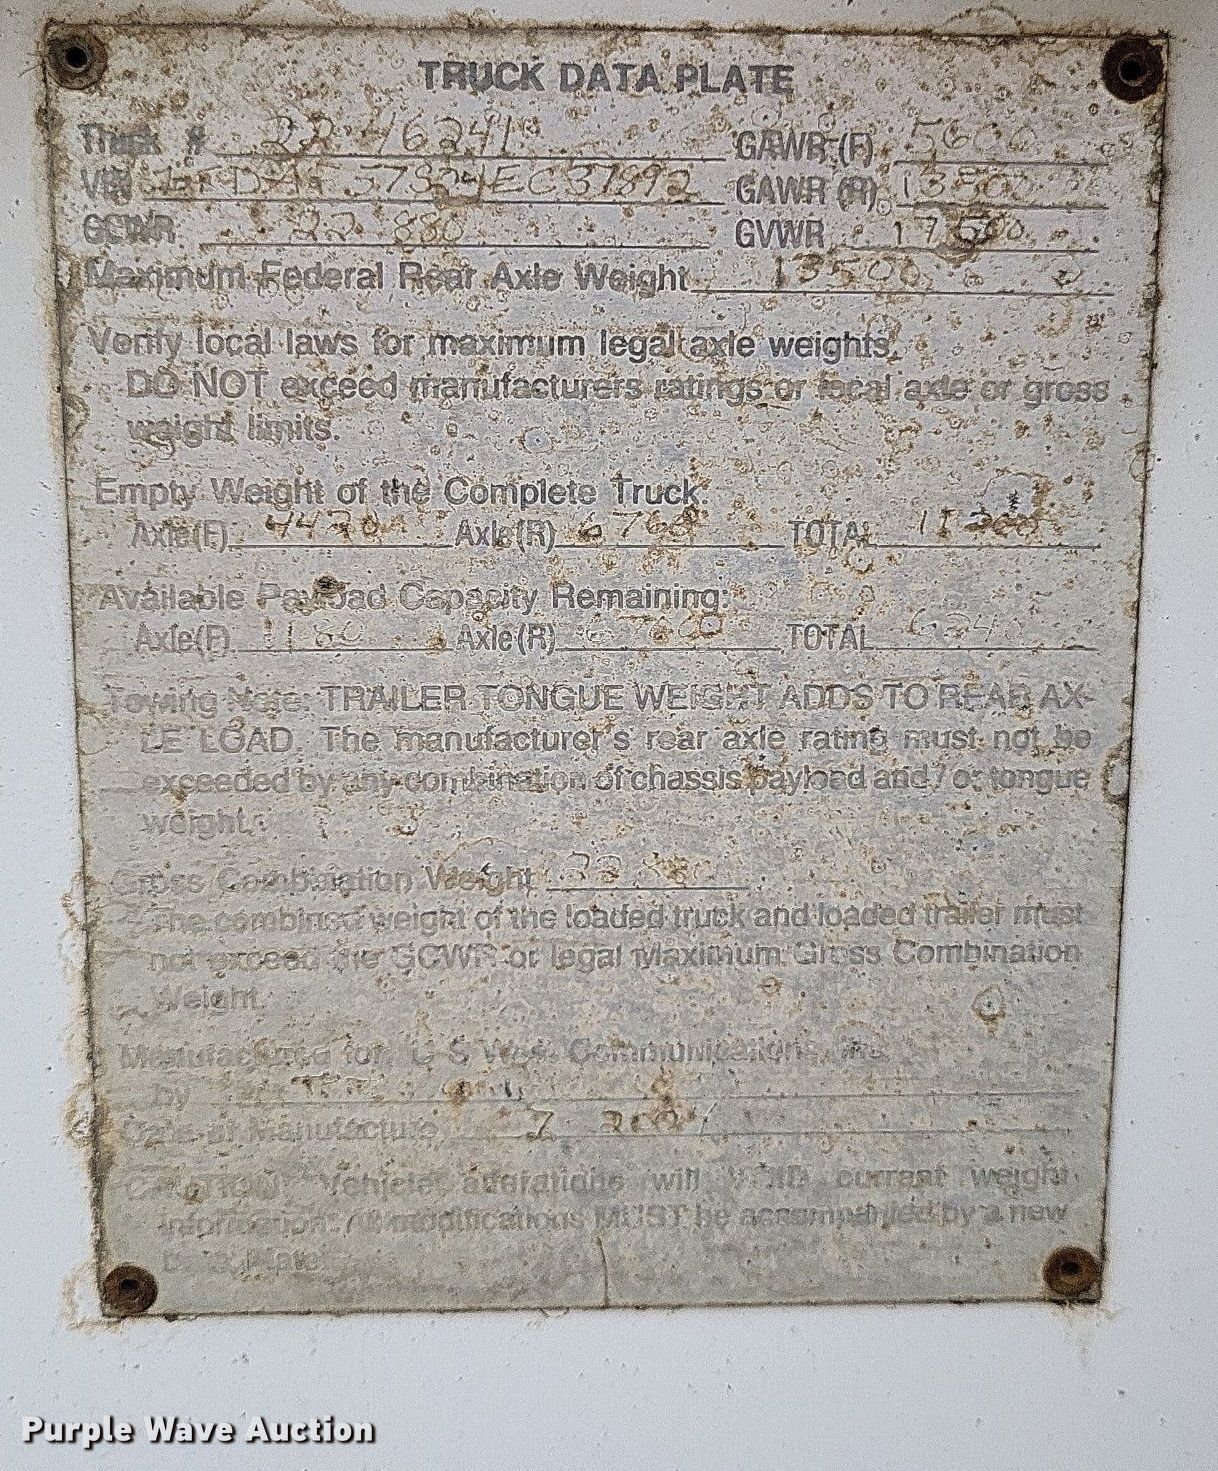 TRUCK DATA PLATE
Truck # 22 46241 GAWR (F) 5600
VIN GAWR (R) 13500
GCWR 22 880 GVWR 17500
Maximum Federal Rear Axle Weight 13500
Verify local laws for maximum legal axle weights.
DO NOT exceed manufacturers ratings or local axle or gross
weight limits.
Empty Weight of the Complete Truck:
Axle(F) 4420 Axle(R) 6768 TOTAL
Available Payload Capacity Remaining:
Axle(F) 1180 Axle(R) TOTAL
Towing Note: TRAILER TONGUE WEIGHT ADDS TO REAR AX-
LE LOAD. The manufacturer's rear axle rating must not be
exceeded by any combination of chassis payload and / or tongue
weight.
Gross Combination Weight 22 880
The combined weight of the loaded truck and loaded trailer must
not exceed the GCWR or legal Maximum Gross Combination
Weight.
Manufactured for: U S West Communications, Inc.
by
Date of Manufacture 7 2004
CAUTION: Vehicle alterations will VOID current weight
information. All modifications MUST be accompanied by a new
Data Plate.
Purple Wave Auction